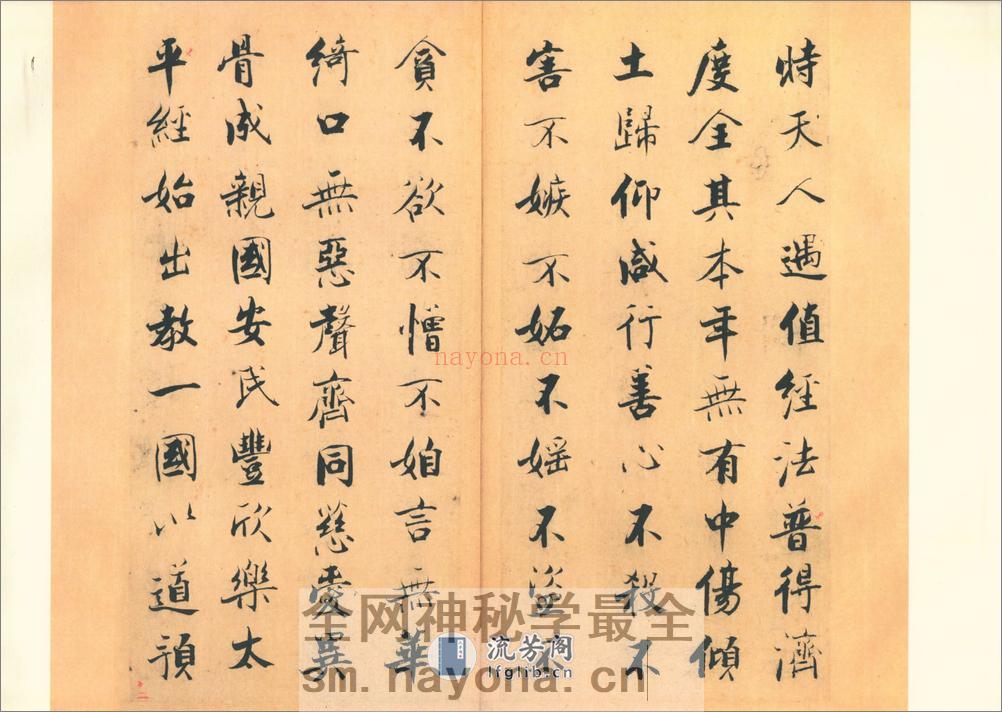 時天人遇值經法普得濟
度全其本年無有中傷傾
土歸仰咸行善心不殺不
害不嫉不妬不婬不盜不
貪不欲不憎不妲言無華
綺口無惡聲齊同慈愛異
骨成親國安民豐欣樂太
平經始出教一國以道預
nayona.cn
全网神秘学最全
流芳阁
lfglib.cn
sm.nayona.cn